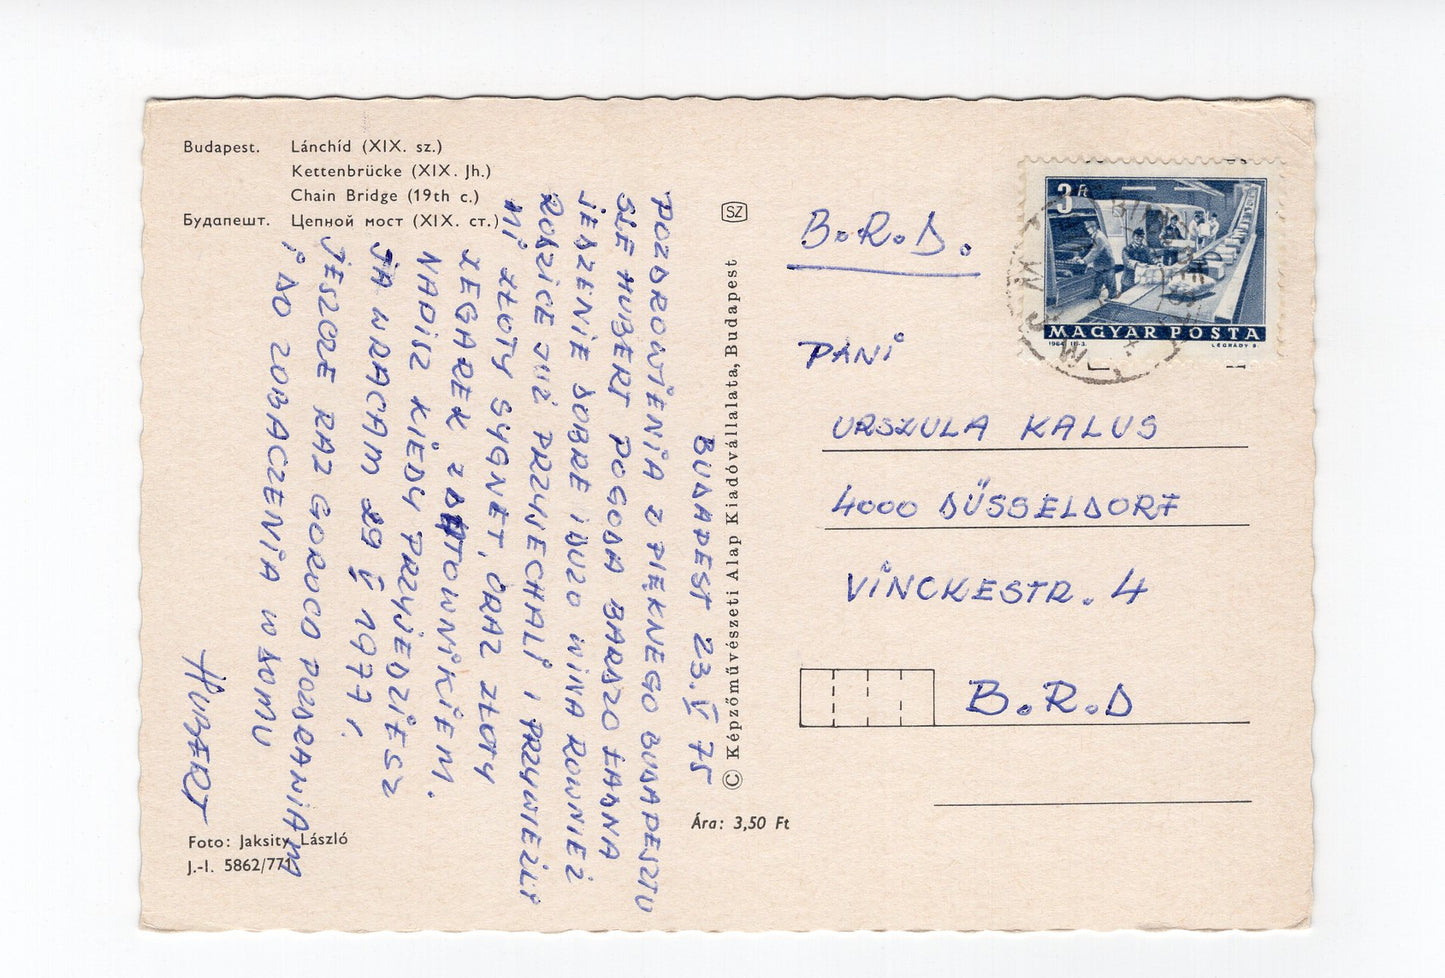 Budapest. Lánchíd (XIX. sz.)
Kettenbrücke (XIX. Jh.)
Chain Bridge (19th c.)
Будапешт. Цепной мост (XIX. ст.)
BUDAPEST 23. V 75
POZDROWIENIA Z PIĘKNEGO BUDAPESZTU
SLE HUBERT POGODA BARDZO ŁADNA
JEDZENIE DOBRE I DUZO WINA ROWNIEŻ
RODZICE JUŻ PRZYJECHALI I PRZYWIEŹLI
MI ZŁOTY SYGNET, ORAZ ZŁOTY
ZEGAREK Z DATOWNIKIEM.
NAPISZ KIEDY PRZYJEDZIESZ
JA WRACAM 29 V 1977 r.
JESZCZE RAZ GORĄCO POZDRAWIAM
I DO ZOBACZENIA W DOMU
HUBERT
Foto: Jaksity László
J.-I. 5862/771
SZ
© Képzőművészeti Alap Kiadóvállalata, Budapest
Ára: 3,50 Ft
3 Ft
MAGYAR POSTA
1964
LÉGRÁDY S.
B.R.D.
PANI
URSZULA KALUS
4000 DÜSSELDORF
VINCKESTR. 4
B.R.D